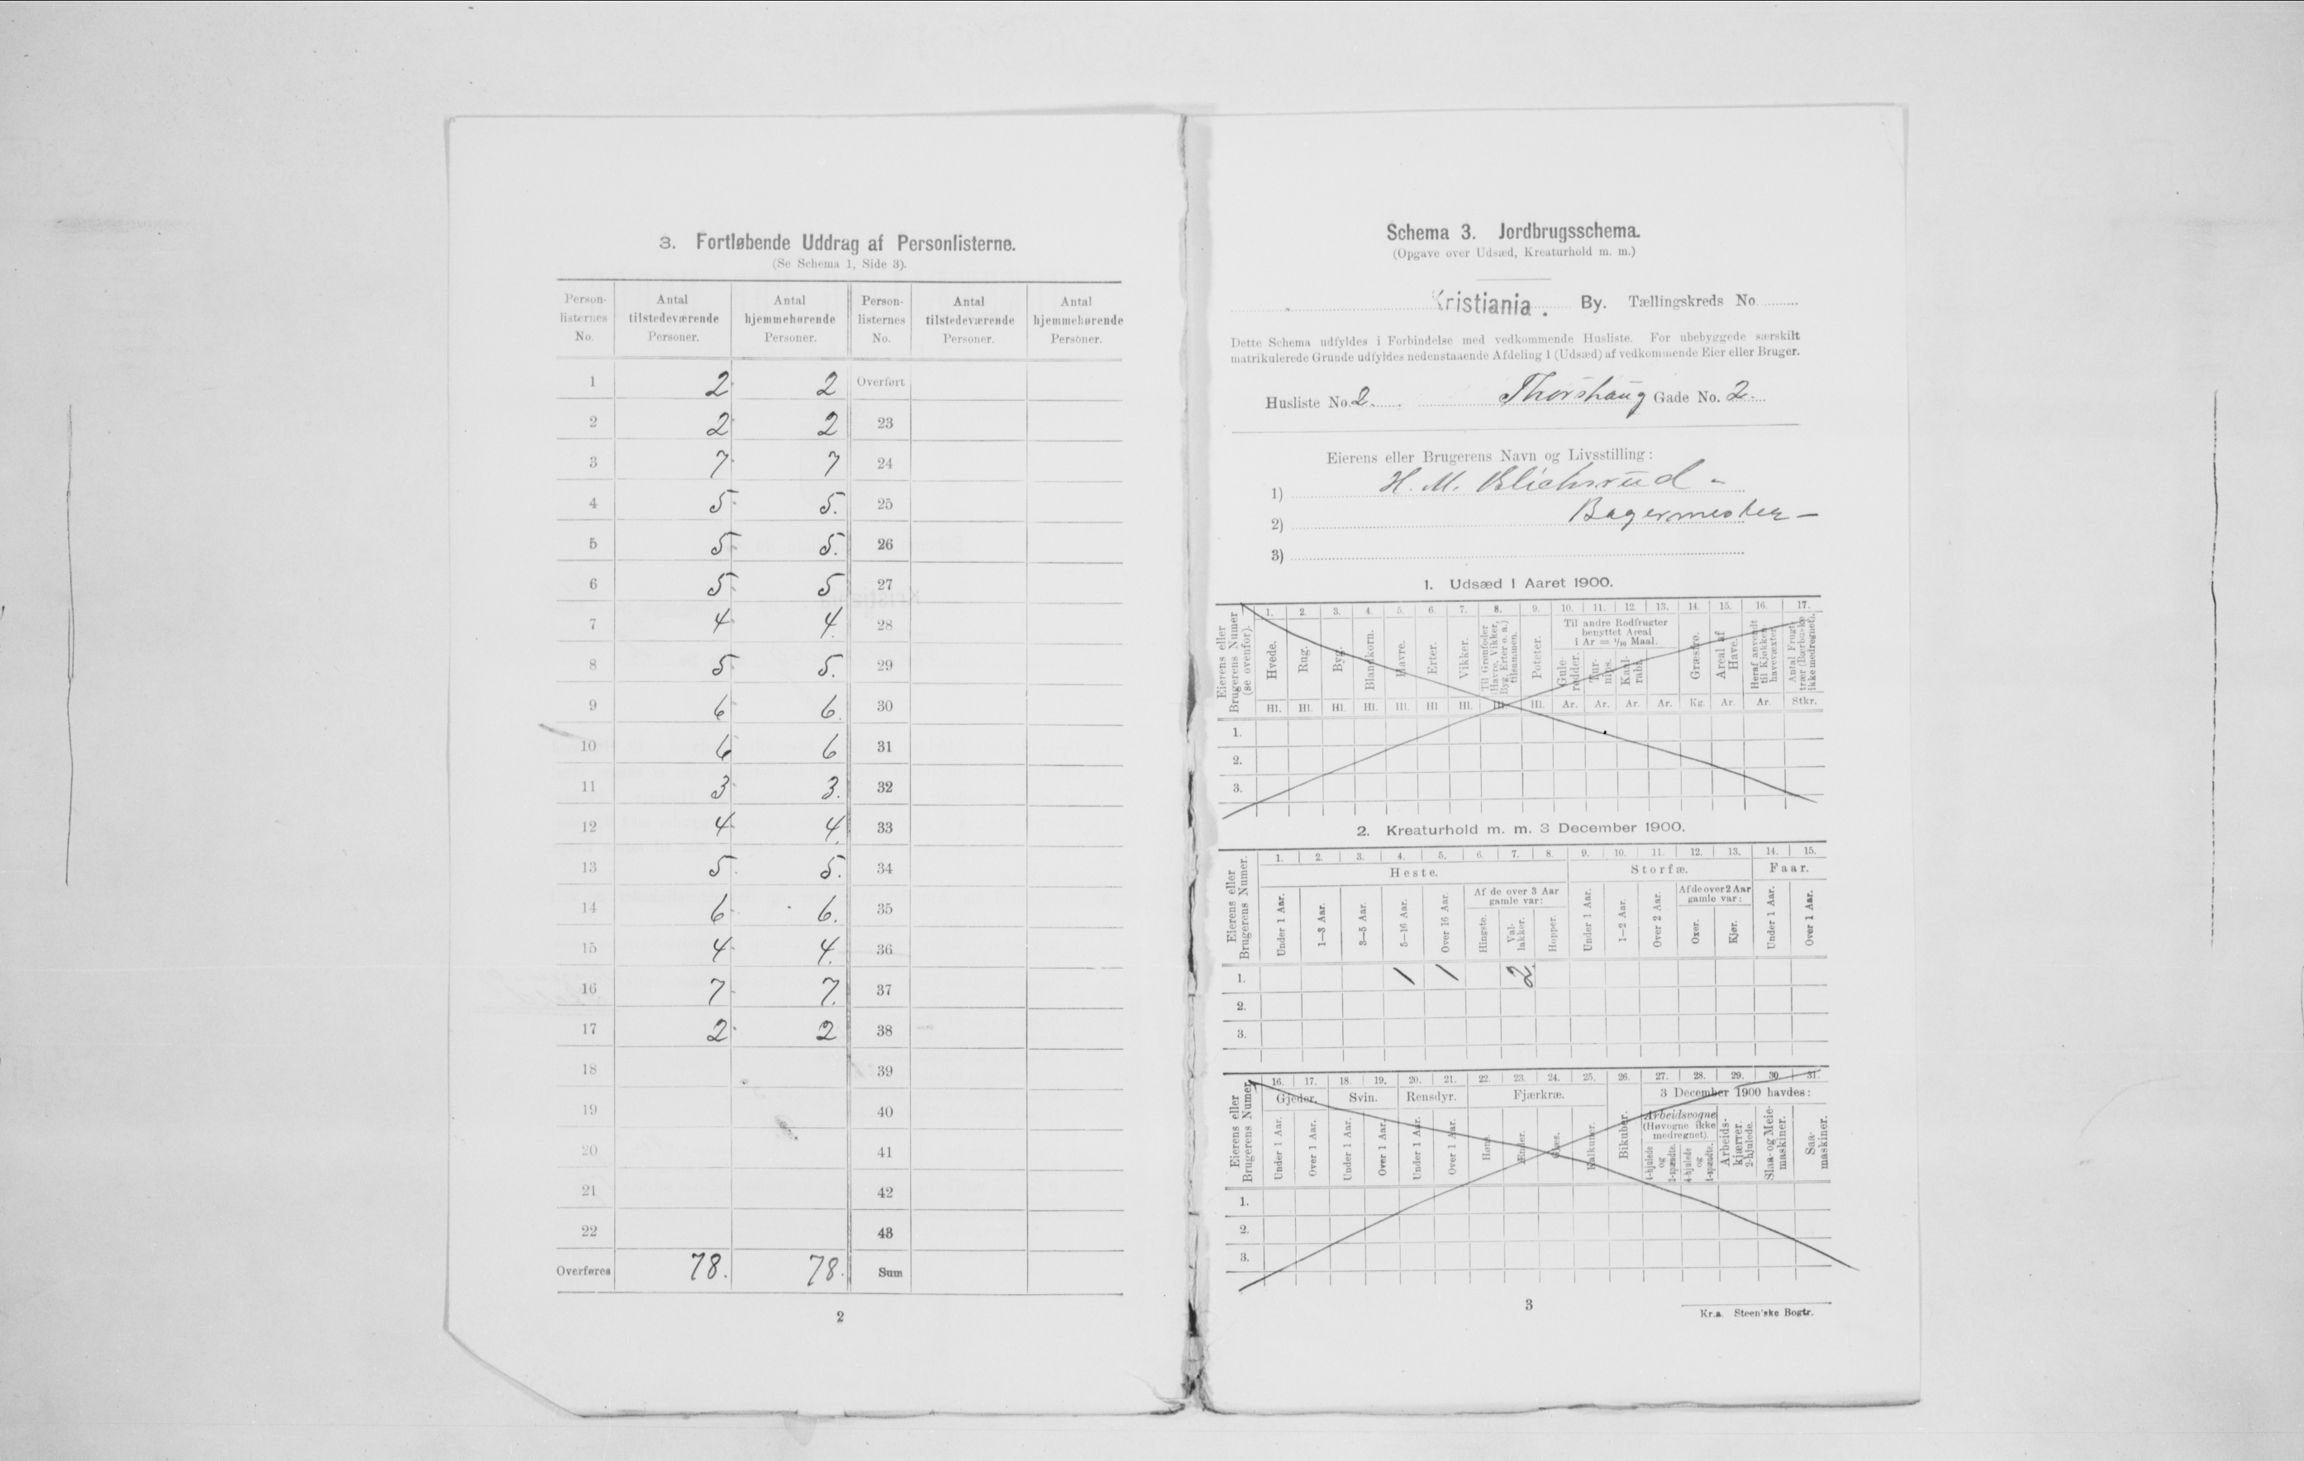 3. Fortløbende Uddrag af Personlisterne.
(Se Schema 1, Side 3).
Person-listernes No. | Antal tilstedeværende Personer. | Antal hjemmehørende Personer. | Person-listernes No. | Antal tilstedeværende Personer. | Antal hjemmehørende Personer.
1 2 2 Overført
2 2 2 23
3 7 7 24
4 5 5. 25
5 5 5. 26
6 5 5 27
7 4 4. 28
8 5 5. 29
9 6 6. 30
10 6 6 31
11 3 3. 32
12 4 4. 33
13 5 5. 34
14 6 6. 35
15 4 4. 36
16 7 7. 37
17 2 2 38
18 39
19 40
20 41
21 42
22 43
Overføres 78. 78. Sum
2
Schema 3. Jordbrugsschema.
(Opgave over Udsæd, Kreaturhold m. m.)
Kristiania. By. Tællingskreds No
Dette Schema udfyldes i Forbindelse med vedkommende Husliste. For ubebyggede særskilt
matrikulerede Grunde udfyldes nedenstaaende Afdeling 1 (Udsæd) af vedkommende Eier eller Bruger.
Husliste No. 2. Thorshaug Gade No. 2.
Eierens eller Brugerens Navn og Livsstilling:
1) H. M. Blichsrud -
2) Bagermester -
3)
1. Udsæd i Aaret 1900.
Eierens eller Brugerens Numer (se ovenfor).
1. 2. 3. 4. 5. 6. 7. 8. 9. 10. 11. 12. 13. 14. 15. 16. 17.
Til andre Rodfrugter benyttet Areal i Ar = 1/10 Maal.
Hvede. Rug. Byg. Blandkorn. Havre. Erter. Vikker. Til Grønfoder (Havre, Vikker, Byg, Erter o. a.) tilsammen. Poteter. Gule-rødder. Tur-nips. Kaal-rabi. Græsfrø. Areal af Have. Heraf anvendt til Kjøkken-havevæxter. Antal Frugt-trær (Bærbuske ikke medregnet).
Hl. Hl. Hl. Hl. Hl. Hl. Hl. Hl. Hl. Ar. Ar. Ar. Ar. Kg. Ar. Ar. Stkr.
1.
2.
3.
2. Kreaturhold m. m. 3 December 1900.
Eierens eller Brugerens Numer.
1. 2. 3. 4. 5. 6. 7. 8. 9. 10. 11. 12. 13. 14. 15.
Heste. Storfæ. Faar.
Af de over 3 Aar gamle var: Af de over 2 Aar gamle var:
Under 1 Aar. 1—3 Aar. 3—5 Aar. 5—16 Aar. Over 16 Aar. Hingste. Val-lakker. Hopper. Under 1 Aar. 1—2 Aar. Over 2 Aar. Oxer. Kjør. Under 1 Aar. Over 1 Aar.
1. 1 1 2
2
3.
Eierens eller Brugerens Numer.
16. 17. 18. 19. 20. 21. 22. 23. 24. 25. 26. 27. 28. 29. 30. 31.
Gjeder. Svin. Rensdyr. Fjærkræ. 3 December 1900 havdes:
Arbeidsvogne (Høvogne ikke medregnet).
Under 1 Aar. Over 1 Aar. Under 1 Aar. Over 1 Aar. Under 1 Aar. Over 1 Aar. Høns. Ænder. Gjæs. Kalkuner. Bikuber. 4-hjulede og 2-spændte. 4-hjulede og 1-spændte. Arbeids-kjærrer. 2-hjulede. Slaa- og Meie-maskiner. Saa-maskiner.
1.
2.
3.
3
Kr.a. Steen'ske Bogtr.